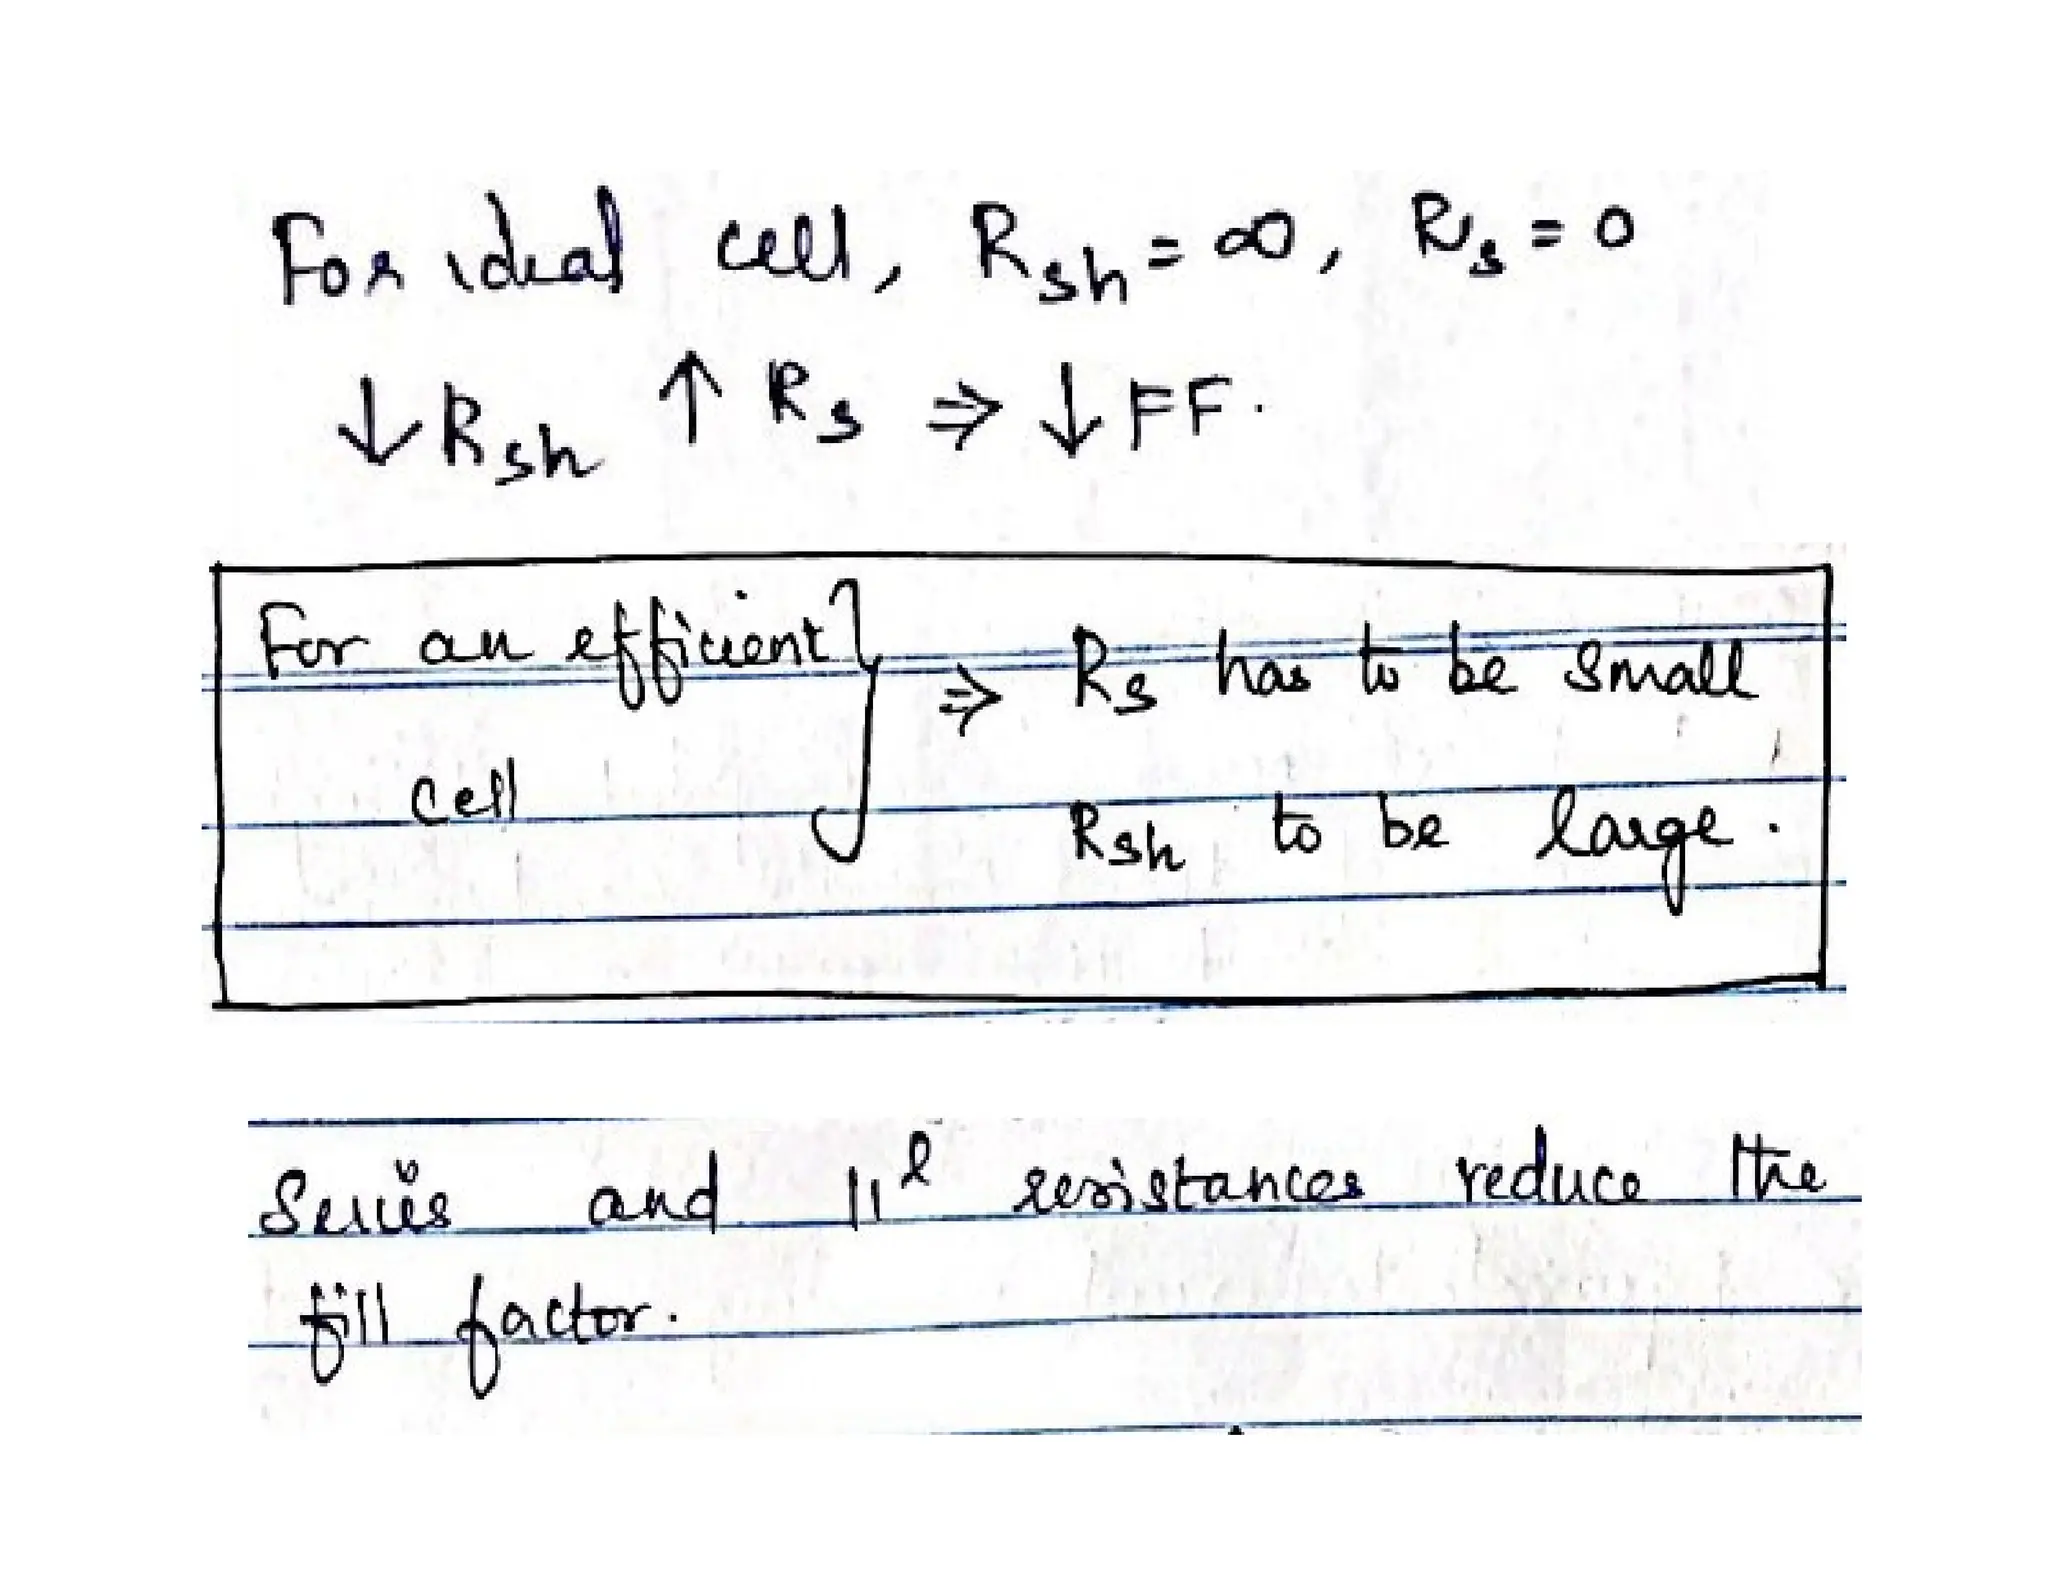 For ideal cell, Rsh = ∞, Rs = 0
↓ Rsh ↑ Rs ⇒ ↓ FF.
For an efficient } ⇒ Rs has to be small
cell Rsh to be large.
Series and ||l resistances reduce the
fill factor.